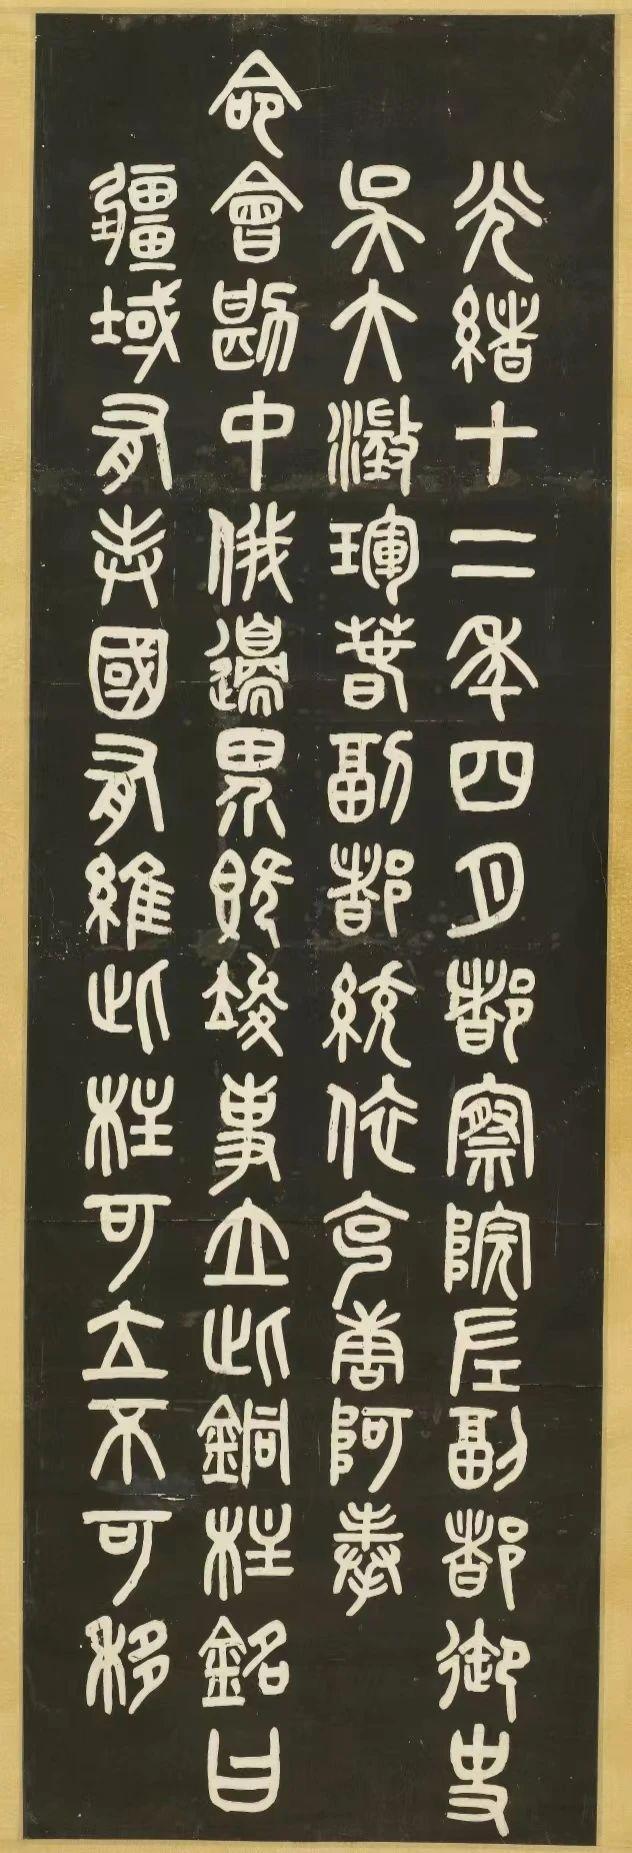 光緒十二年四月都察院左副都御史
吳大澂琿春副都統依克唐阿奉
命會勘中俄邊界既竣事立此銅柱銘曰
疆域有志國有維此柱可立不可移